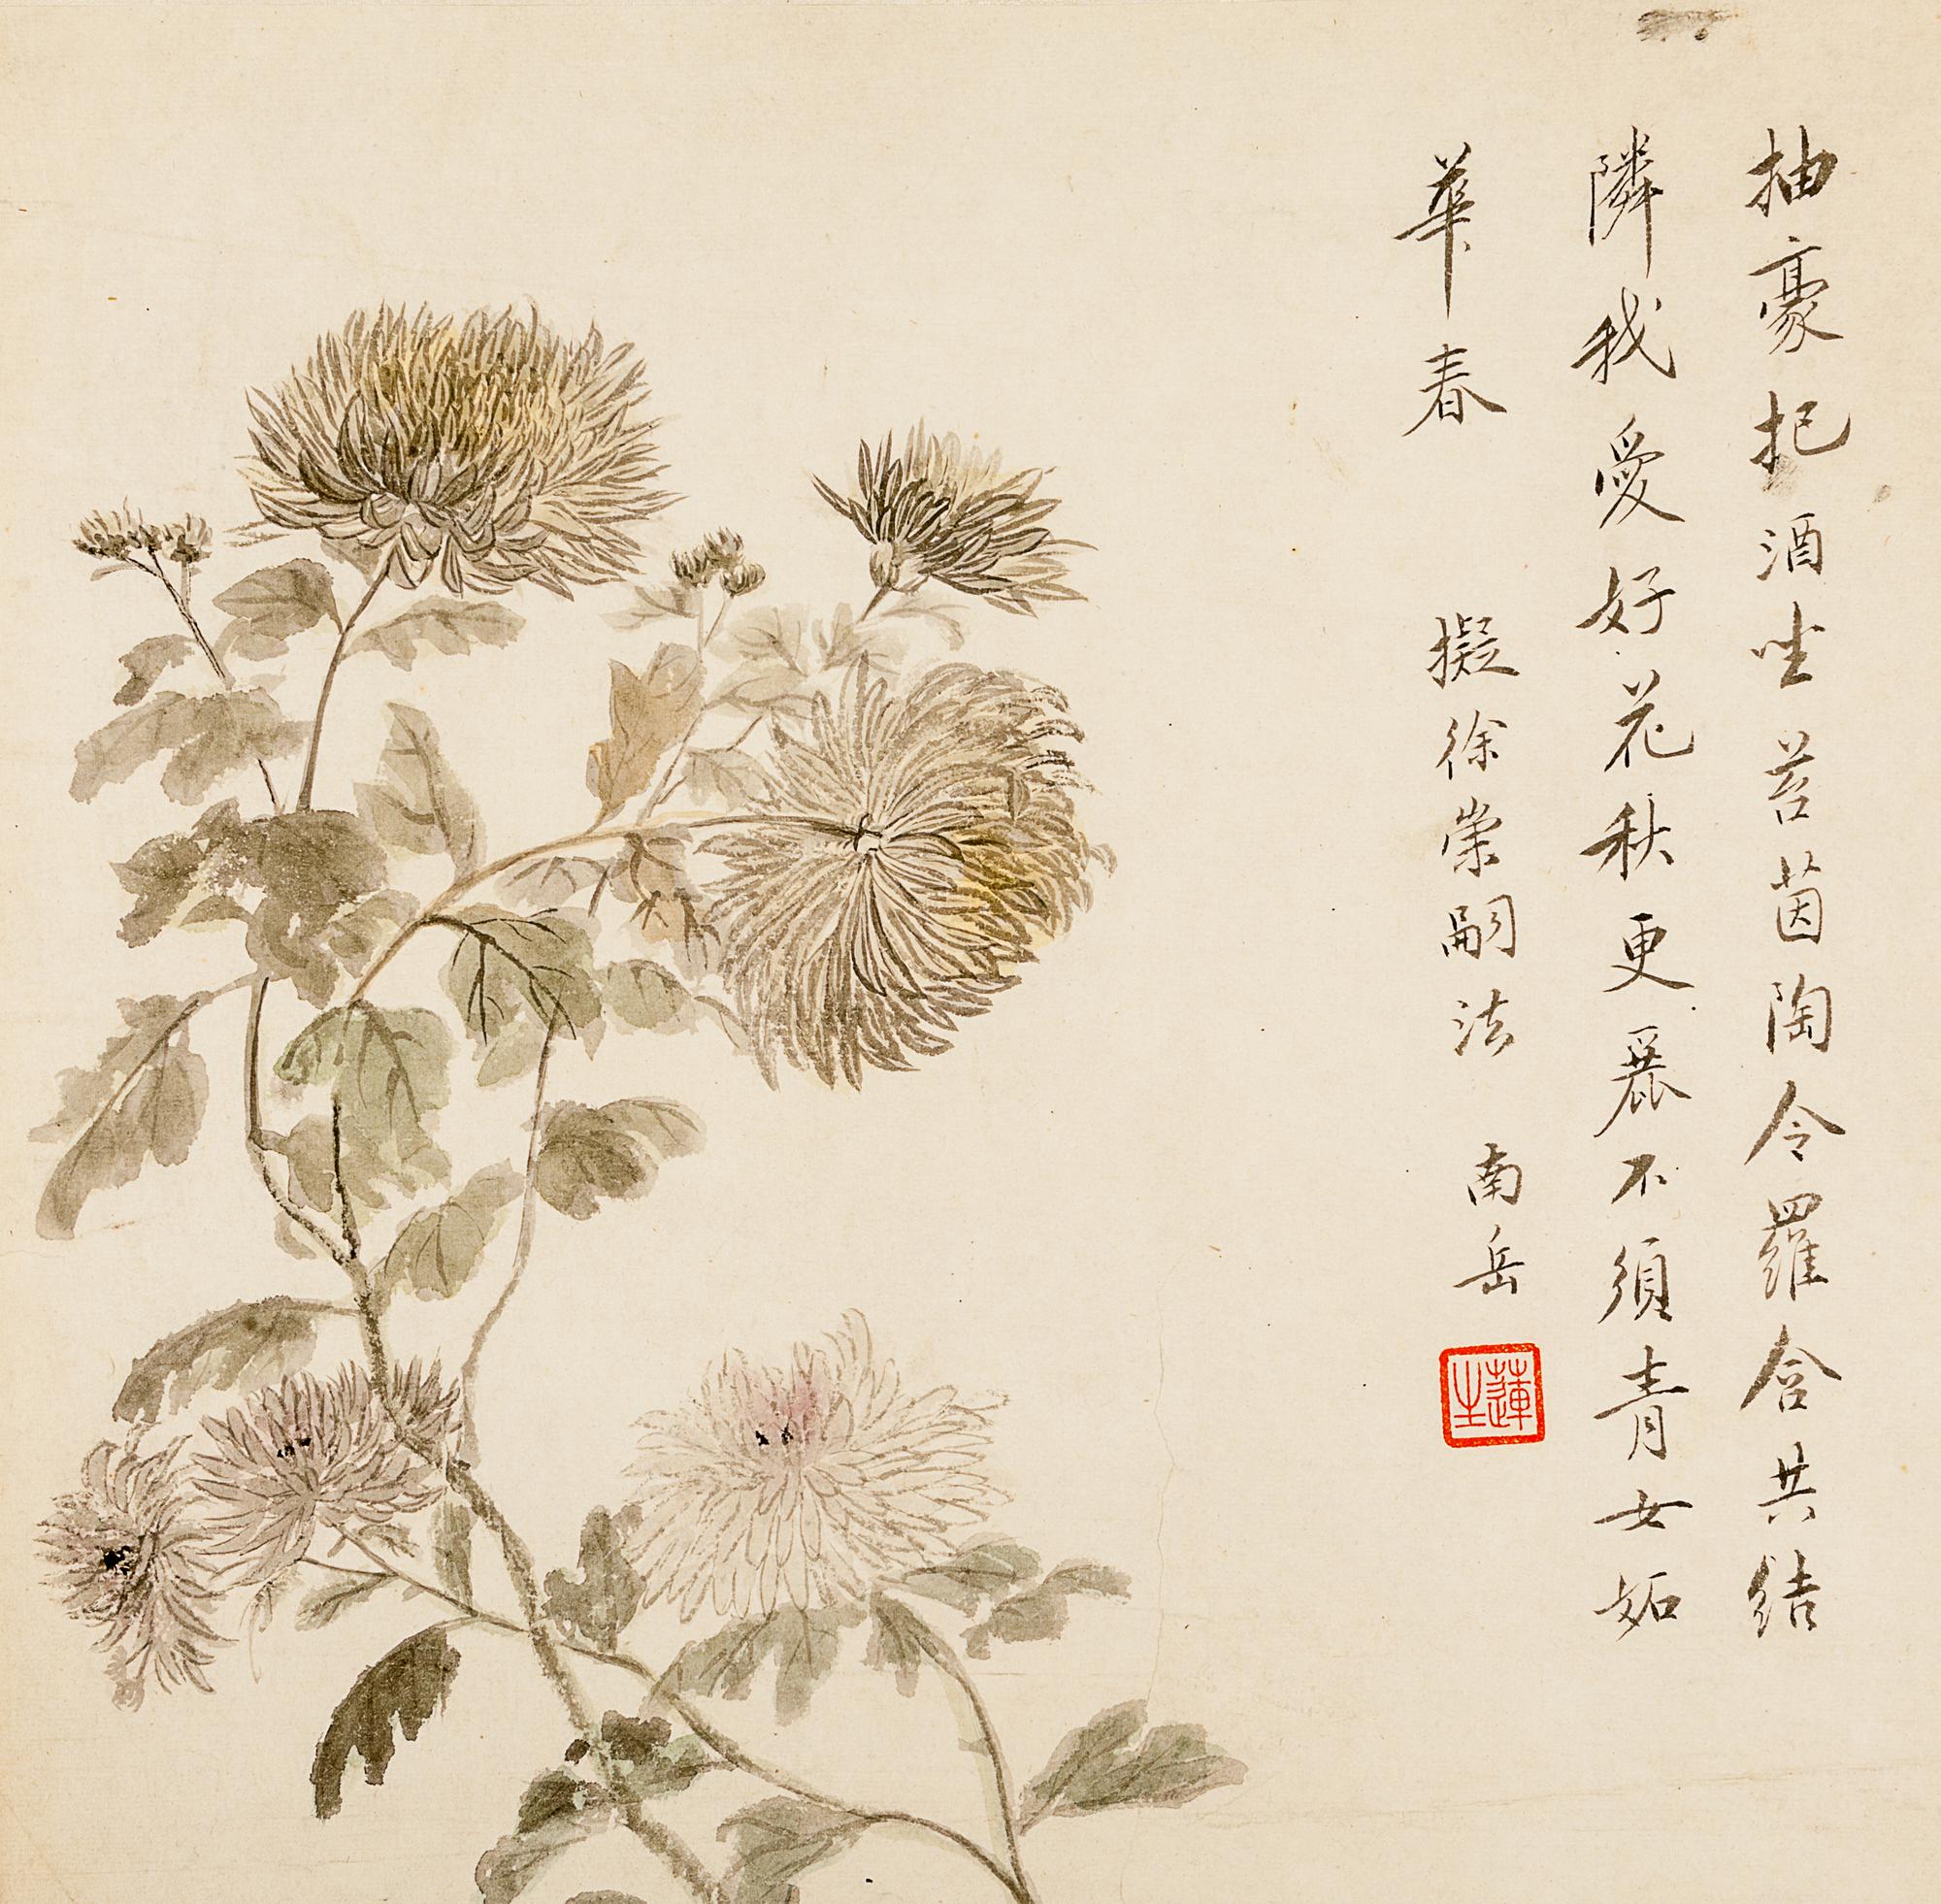 抽豪把酒坐苔茵陶令羅含共結
隣我愛好花秋更麗不須青女妬
華春
擬徐崇嗣法 南岳
蓮生